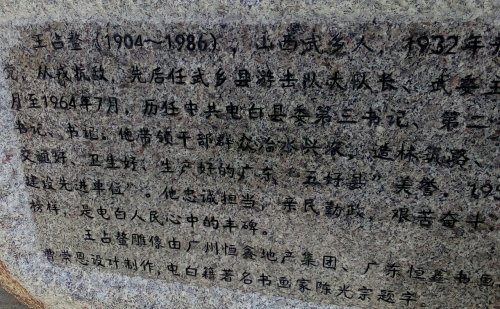 王占鳌（1904～1986），山西武乡人，1932年
党，从戎抗敌，先后任武乡县游击队大队长、武委
月至1964年7月，历任中共电白县委第三书记、第二
书记、书记。他带领干部群众治水兴农，造林筑路、
交通好、卫生好、生产好的广东“五好县”美誉，
建设先进单位”。他忠诚担当，亲民勤政，艰苦奋斗
榜样，是电白人民心中的丰碑。
王占鳌雕像由广州恒鑫地产集团、广东恒鑫书画
曹崇恩设计制作，电白籍著名书画家陈光宗题字。